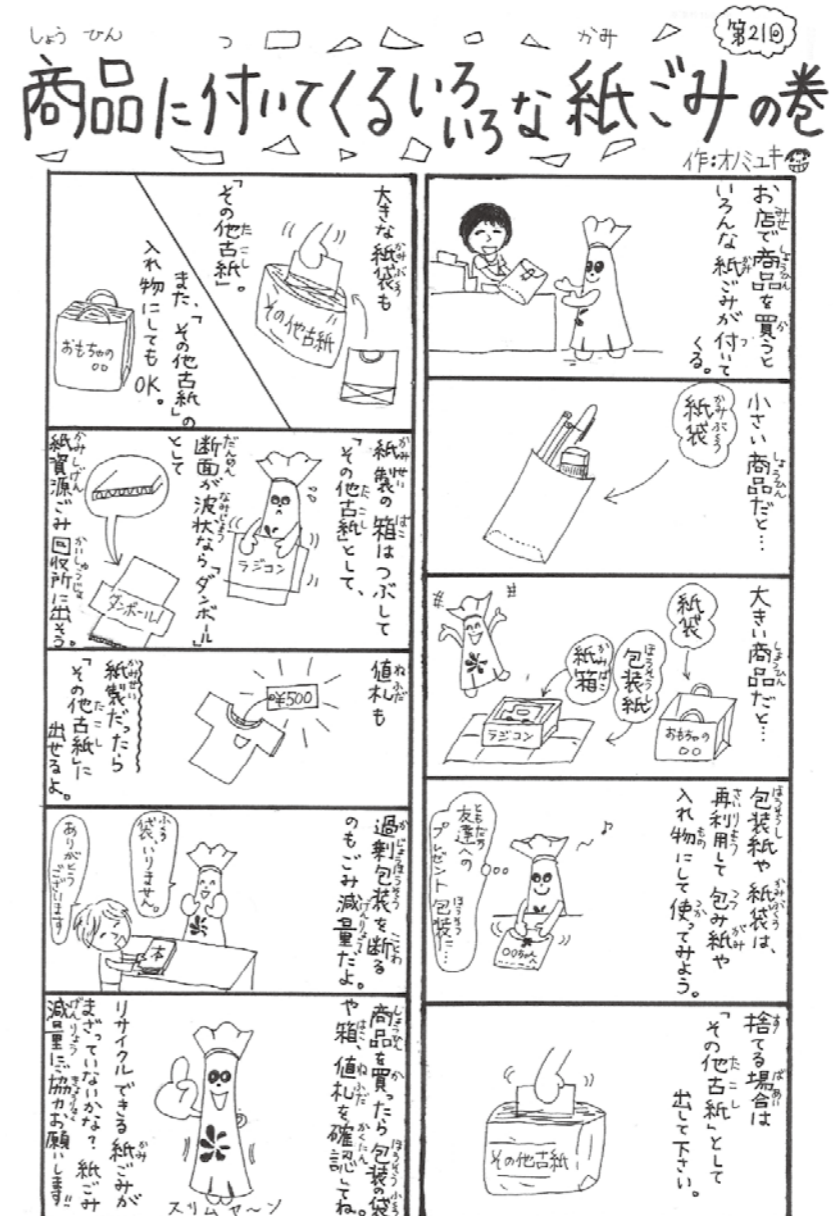 第21回
商品に付いてくるいろいろな紙ごみの巻
作:オノミユキ
お店で商品を買うと
いろんな紙ごみが付いて
くる。
小さい商品だと…
紙袋
大きい商品だと…
紙袋
包装紙
紙箱
おもちゃの
○○
ラジコン
包装紙や紙袋は、
再利用して包み紙や
入れ物にして使ってみよう。
友達への
プレゼント包装に…
○○ちゃんへ
捨てる場合は
「その他古紙」として
出して下さい。
その他古紙
大きな紙袋も
「その他古紙」。
その他古紙
また、「その他古紙」の
入れ物にしてもOK。
おもちゃの
○○
紙製の箱はつぶして
「その他古紙」として、
断面が波状なら「ダンボール」
として
紙資源ごみ回収所に出そう。
ラジコン
ダンボール!
値札も
¥500
紙製だったら
「その他古紙」に
出せるよ。
過剰包装を断る
のもごみ減量だよ。
袋、いりません。
ありがとう
ございます
本
商品を買ったら包装の袋
や箱、値札を確認してね。
リサイクルできる紙ごみが
まざっていないかな?紙ごみ
減量にご協力お願いします!!
スリムヤ〜ン